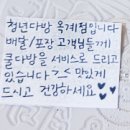 청년다방 옥계점입니다
배달/포장 고객님들께
쿨다방을 서비스로 드리고
있습니다 ㄱㅅ 맛있게
드시고 건강하세요♥♥